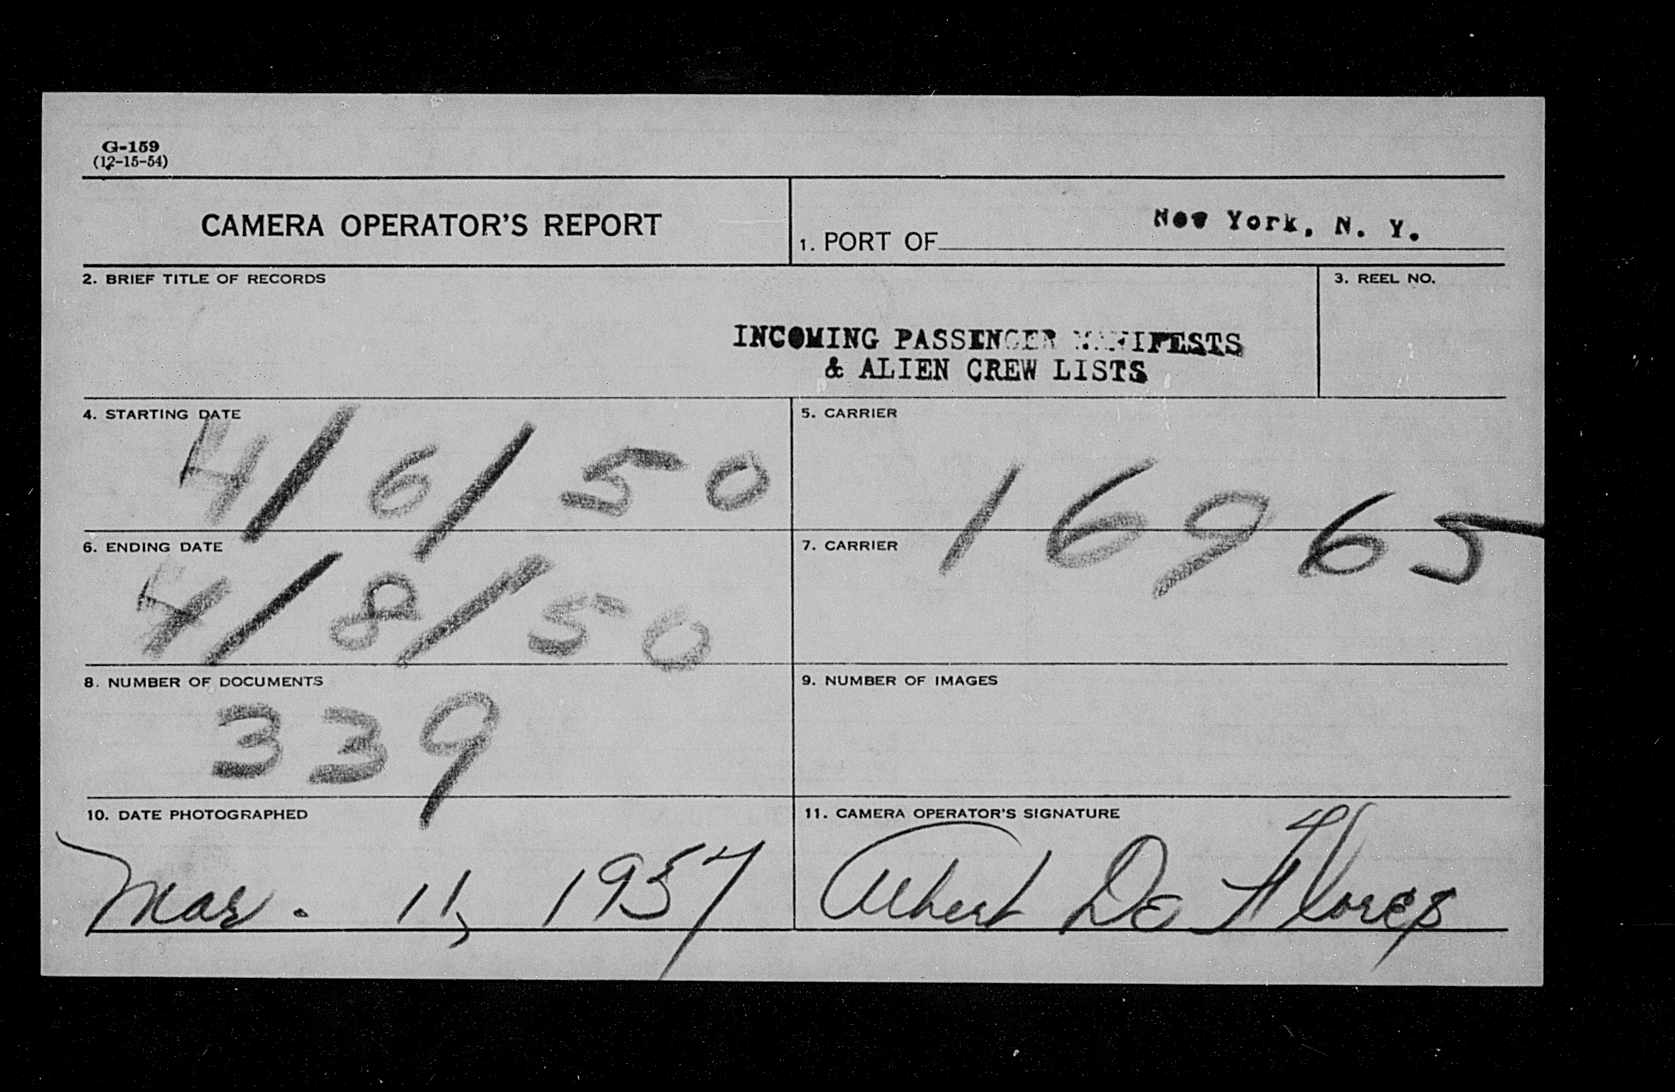 G-159
(12-15-54)
CAMERA OPERATOR'S REPORT
1. PORT OF New York, N. Y.
2. BRIEF TITLE OF RECORDS
3. REEL NO.
INCOMING PASSENGER MANIFESTS
& ALIEN CREW LISTS
4. STARTING DATE
4/6/50
5. CARRIER
16965
6. ENDING DATE
4/8/50
7. CARRIER
8. NUMBER OF DOCUMENTS
339
9. NUMBER OF IMAGES
10. DATE PHOTOGRAPHED
Mar. 11, 1957
11. CAMERA OPERATOR'S SIGNATURE
Albert De Flores